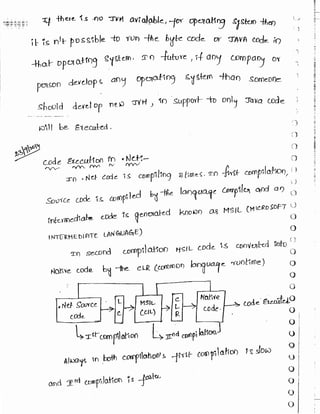 If there is no JVM available, for operating system then
it is n't possible to run the byte code or JAVA code in
that operating system. In future, if any company or
person develops any operating system than someone
should develop new JVM, in support to only Java code
will be Executed.
code Execution in .Net:-
In .Net code is compiling 2 times. In first compilation,
Source code is compiled by the language compiler and an
Intermediate code is generated known as MSIL (MICROSOFT
INTERMEDIATE LANGUAGE)
In second compilation MSIL code is converted into
Native code by the CLR (common language runtime)
.Net Source code
L C
MSIL (CIL)
C L R
Native code.
code Executed
Ist compilation
IInd compilation
Always in both compilation's first compilation is slow
and IInd compilation is faster.